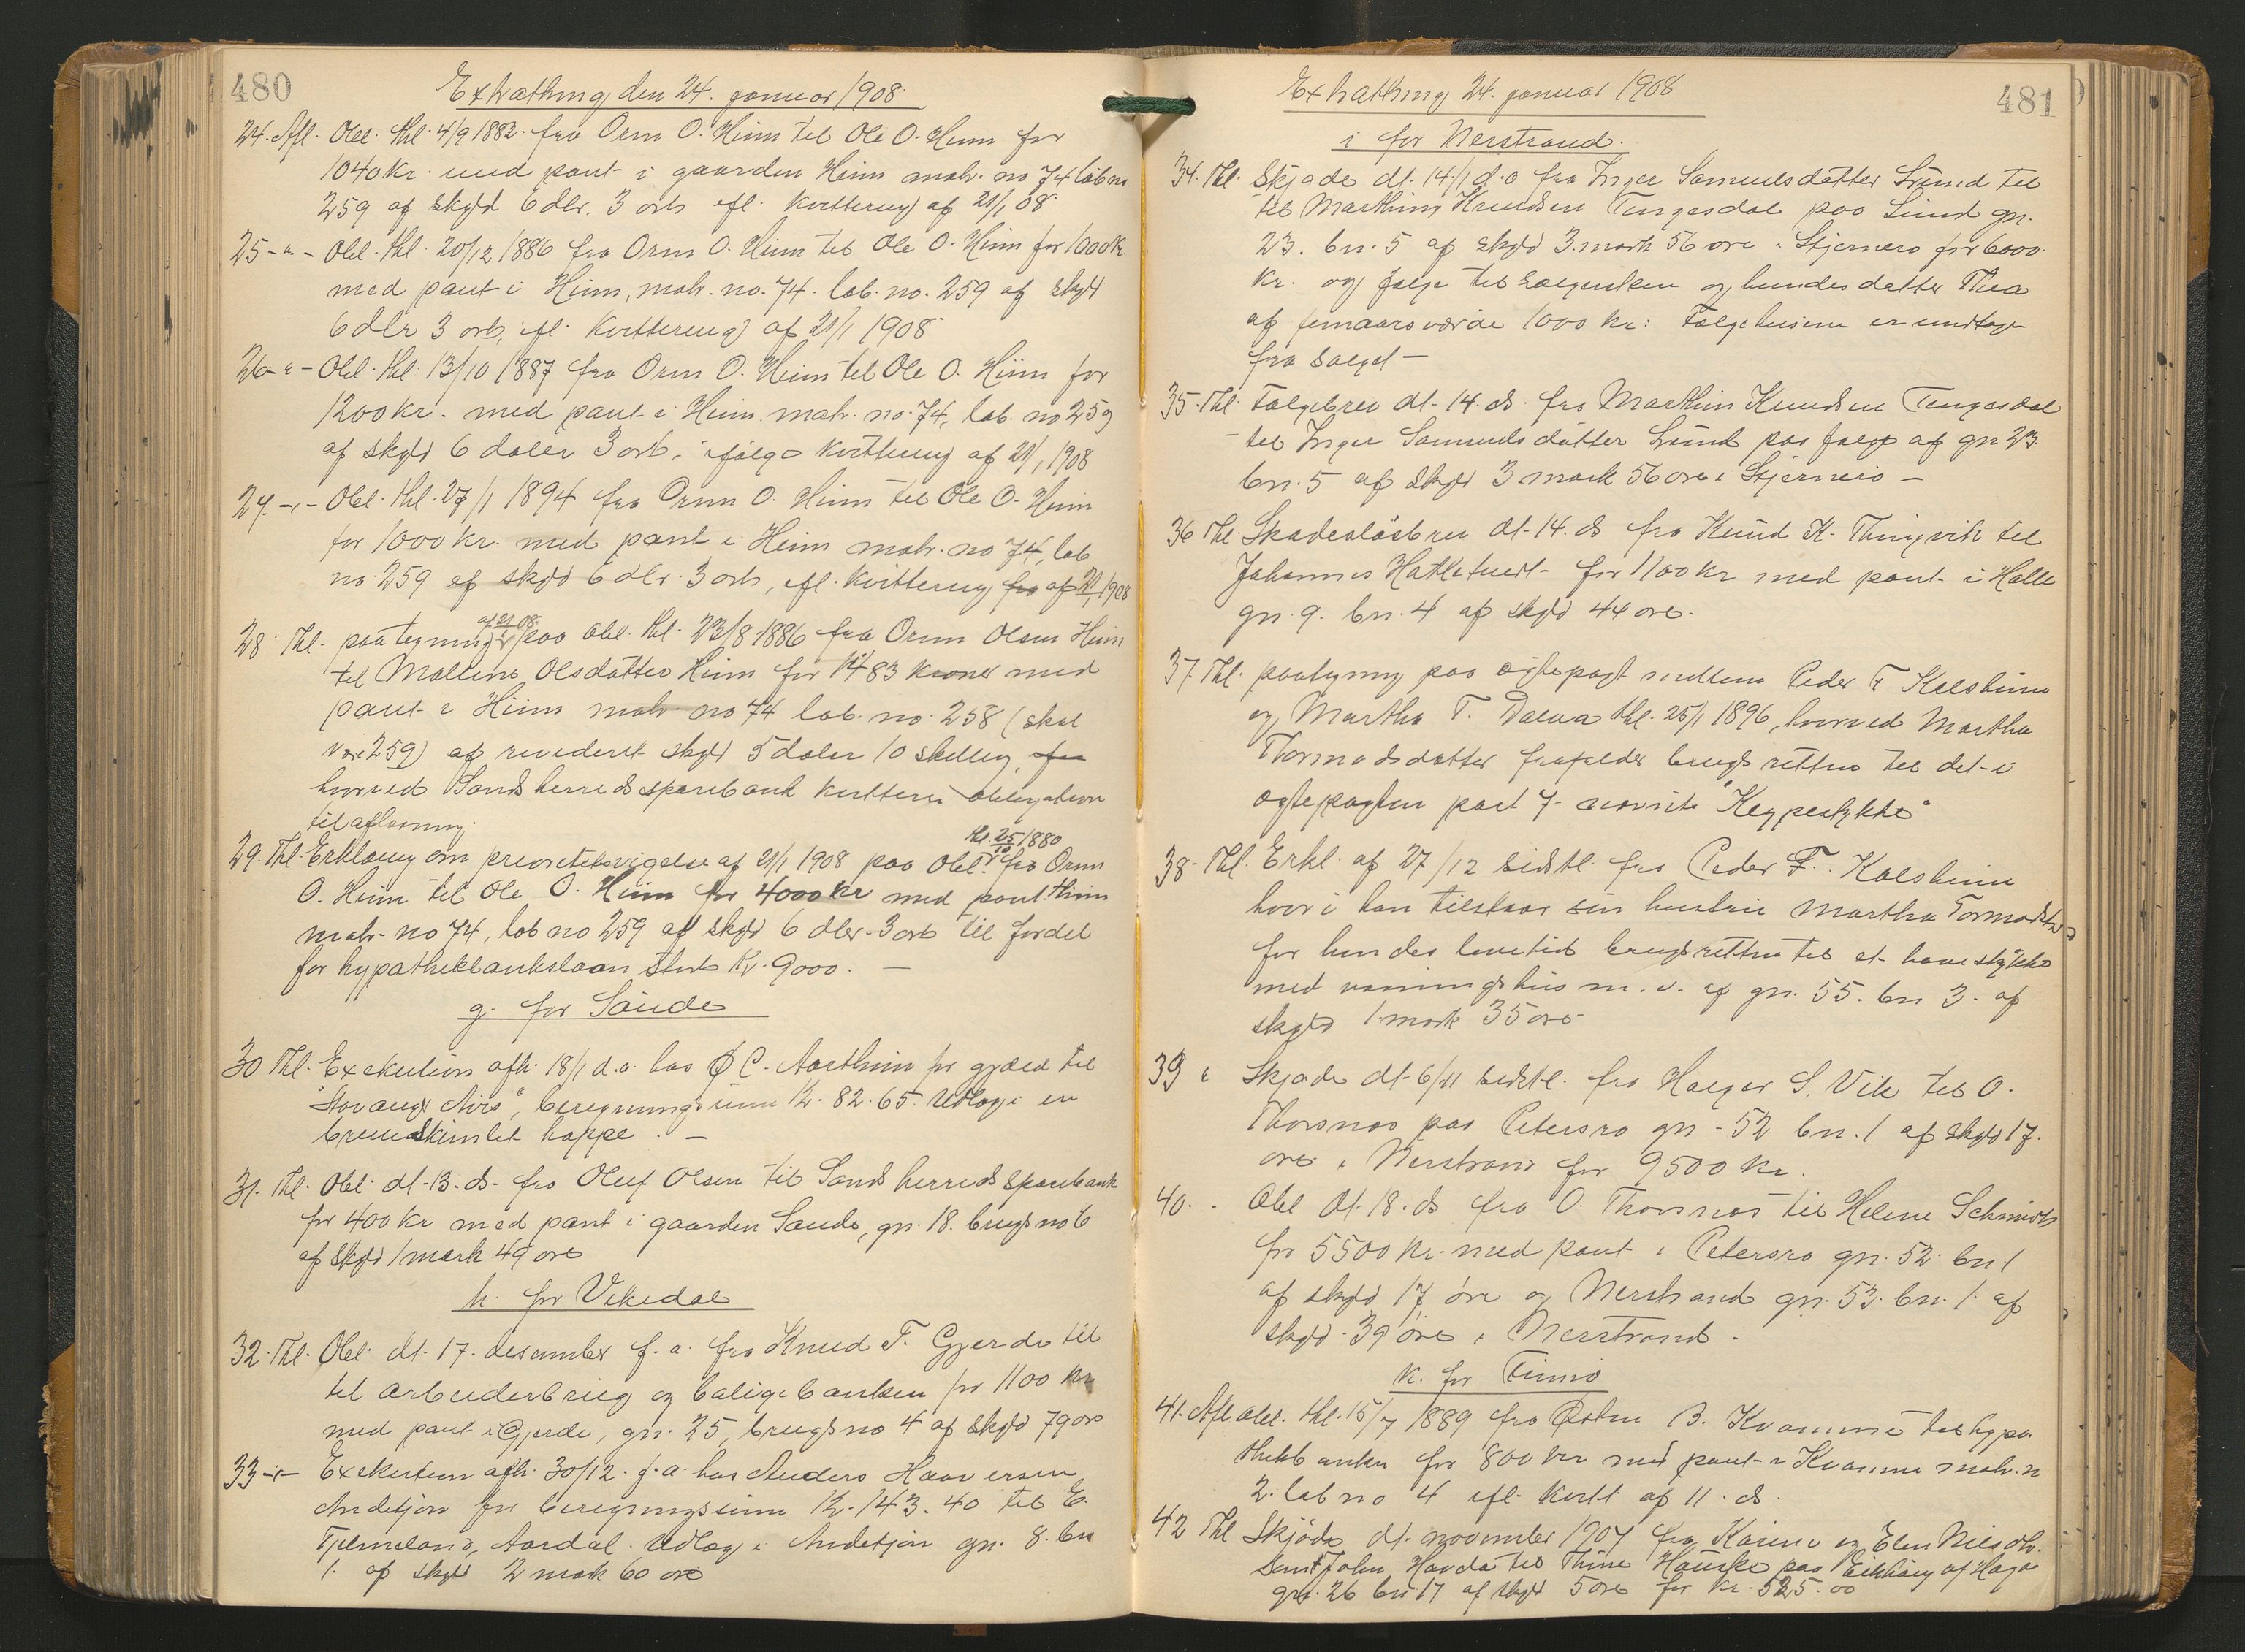 480
Extrathing den 24. januar 1908.
24. Afl. Obl. thl. 4/9 1882. fra Orm O. Heim til Ole O. Heim for
1040 kr. med pant i gaarden Heim matr. no 74 løb no
259 af skyld 6 dlr. 3 ort ifl. kvittering af 21/1 08.
25 -"- Obl. thl. 20/12 1886 fra Orm O. Heim til Ole O. Heim for 1000 kr
med pant i Heim, matr. no. 74. løb. no. 259 af skyld
6 dlr 3 ort, ifl. kvittering af 21/1 1908
26 -"- Obl. thl. 13/10 1887 fra Orm O. Heim til Ole O. Heim for
1200 kr. med pant i Heim matr. no 74, løb. no 259
af skyld 6 daler 3 ort, ifølge kvittering af 21/1 1908
27. -"- Obl. thl. 27/1 1894 fra Orm O. Heim til Ole O. Heim
for 1000 kr. med pant i Heim matr. no 74, løb
no 259 af skyld 6 dlr. 3 ort, ifl. kvittering fra af 21/1 1908
28. Thl. paategning af 21/1 08 paa obl. thl. 23/8 1886 fra Orm Olsen Heim
til Mallene Olsdatter Heim for 1483 kroner med
pant i Heim matr. no 74 løb. no. 258 (skal
være 259) af revideret skyld 5 daler 10 skilling, fra
hvorved Sands herreds sparebank kvitterer obligationen
til aflæsning.
29. Thl. Erklæring om prioritetsvigelse af 21/1 1908 paa Obl. thl. 25/10 1880 fra Orm
O. Heim til Ole O. Heim for 4000 kr med pant i Heim
matr. no 74, løb no 259 af skyld 6 dlr. 3 ort til fordel
for hypothekbankslaan stort Kr. 9000. —
g. for Saude
30 Thl. Exekution afh. 18/1 d.a. hos O C. Aartheim for gjæld til
"Stavanger Avis", beregningssum Kr. 82.65. Udlæg i en
brunskimlet hoppe. —
31. Thl. Obl. dt. 13. ds. fra Oluf Olsen til Sands herreds sparebank
for 400 kr med pant i gaarden Saude, gn. 18. brugs no 6
af skyld 1 mark 49 øre
h. for Vikedal
32. Thl. Obl. dt. 17. desember f.a. fra Knud T. Gjerde til
til arbeiderbrug og boligbanken for 1100 kr
med pant i Gjerde, gn. 25, brugs no 4 af skyld 79 øre
33 -"- Exekution afh. 30/12. f.a. hos Anders Haaversen
Indetjørn for beregningssum Kr. 143.40 til E.
Tjelmeland, Aardal. Udlæg i Indetjørn gn. 8. bn
1. af skyld 2 mark 60 øre
481
Extrathing 24. januar 1908
i for Nerstrand.
34. Thl. Skjøde dt. 14/1 d.a fra Inger Samuelsdatter Lund til
til Marthin Knudsen Tengesdal paa Lund gn.
23. bn. 5 af skyld 3 mark 56 øre i Stjernerø for 6000.
kr. og følge til sælgersken og hendes datter Thea
af femaarsværdie 1000 kr: Følgehusene er undtagen
fra salget —
35. Thl. Følgebrev dt. 14. ds. fra Marthin Knudsen Tengesdal
til Inger Samuelsdatter Lund paa følge af gn 23.
bn. 5 af skyld 3 mark 56 øre i Stjernerø —
36 Thl Skadesløsbrev dt. 14. ds fra Knud K. Thingvik til
Johannes Halletuedt for 1100 kr med pant i Halle
gn. 9. bn. 4 af skyld 44 øre.
37. Thl. paategning paa ægtepagt mellem Peder F Kolsheim
og Martha T. Dalva thl. 25/1 1896, hvorved Martha
Thormodsdatter frafalder brugsretten til det i
ægtepagten post 7 anviste "Keypestykke"
38. Thl. Erkl. af 27/12 sidstl. fra Peder F. Kolsheim
hvor i han tilstaar sin hustru Martha Tormodsdtr
for hendes levetid brugsretten til et havestykke
med vaaningshus m.v. af gn. 55. bn 3. af
skyld 1 mark 35 øre
39 " Skjøde dt. 6/11 sidstl. fra Holger S. Vik til O.
Thorsnes paa Petersro gn. 52 bn. 1 af skyld 17.
øre i Nerstrand for 9500 kr.
40. " Obl dt. 18. ds fra O. Thorsnes til Helene Schmidt
for 5500 kr. med pant i Petersro gn. 52. bn 1
af skyld 17 øre og Nerstrand gn. 53. bn. 1. af
skyld. 39 øre i Nerstrand.
k. for Finnø
41. Afl obl. thl. 15/7 1889 fra Østen B. Kvamme til hypo-
thekbanken for 800 kr med pant i Kvamme matr. n
2. løb no 4 ifl. kvitt af 11. ds.
42 Thl Skjøde dt. november 1907 fra Karine og Elen Nilsdtr.
samt John Hauda til Thine Hauske paa Eikhaug af Hage
gn. 26 bn 17 af skyld 5 øre for Kr. 525.00